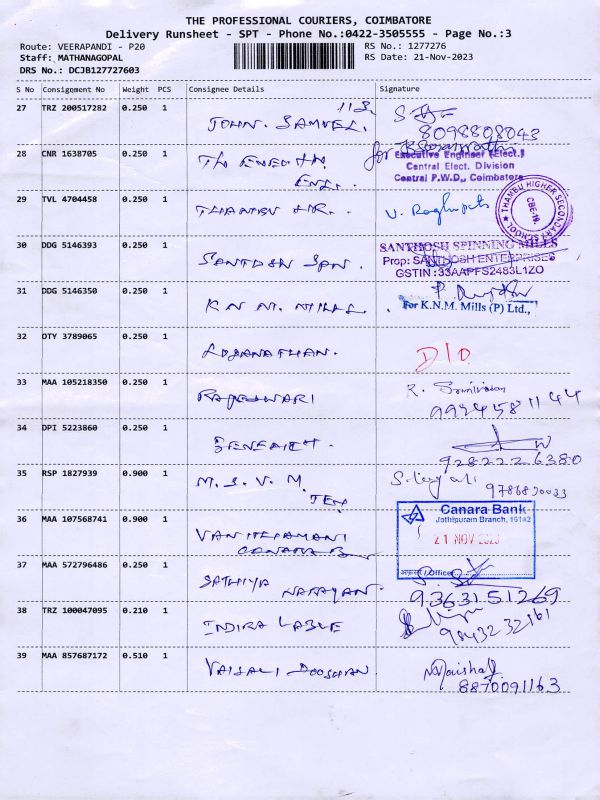 THE PROFESSIONAL COURIERS, COIMBATORE
Delivery Runsheet - SPT - Phone No.:0422-3505555 - Page No.:3
Route: VEERAPANDI - P20
RS No.: 1277276
Staff: MATHANAGOPAL
RS Date: 21-Nov-2023
DRS No.: DCJB127727603
S No Consignment No Weight PCS Consignee Details Signature
27 TRZ 200517282 0.250 1 JOHN. SAMUEL. 113.
8098808043
28 CNR 1638705 0.250 1
for
Executive Engineer (Elect.)
Central Elect. Division
Central P.W.D., Coimbatore
29 TVL 4704458 0.250 1
THAMBU HIGHER SECONDARY SCHOOL
CBE-19.
30 DDG 5146393 0.250 1
SANTHOSH SPINNING MILLS
Prop: SANTHOSH ENTERPRISES
GSTIN :33AAPFS2483L1ZO
31 DDG 5146350 0.250 1 K N M. MILLS.
For K.N.M. Mills (P) Ltd.,
32 OTY 3789065 0.250 1 LOGANATHAN. D/O
33 MAA 105218350 0.250 1 RAJESWARI R. Srinivasan
9994581144
34 DPI 5223860 0.250 1
9282226380
35 RSP 1827939 0.900 1 M. S. V. M.
TEX
36 MAA 107568741 0.900 1
CANARA B
Canara Bank
Jothipuram Branch, 16142
21 NOV 2023
/ Officer
37 MAA 572796486 0.250 1 SATHIYA
NARAYAN.
9363151269
38 TRZ 100047095 0.210 1 INDIRA
9843232161
39 MAA 857687172 0.510 1 VAISALI
8870091163